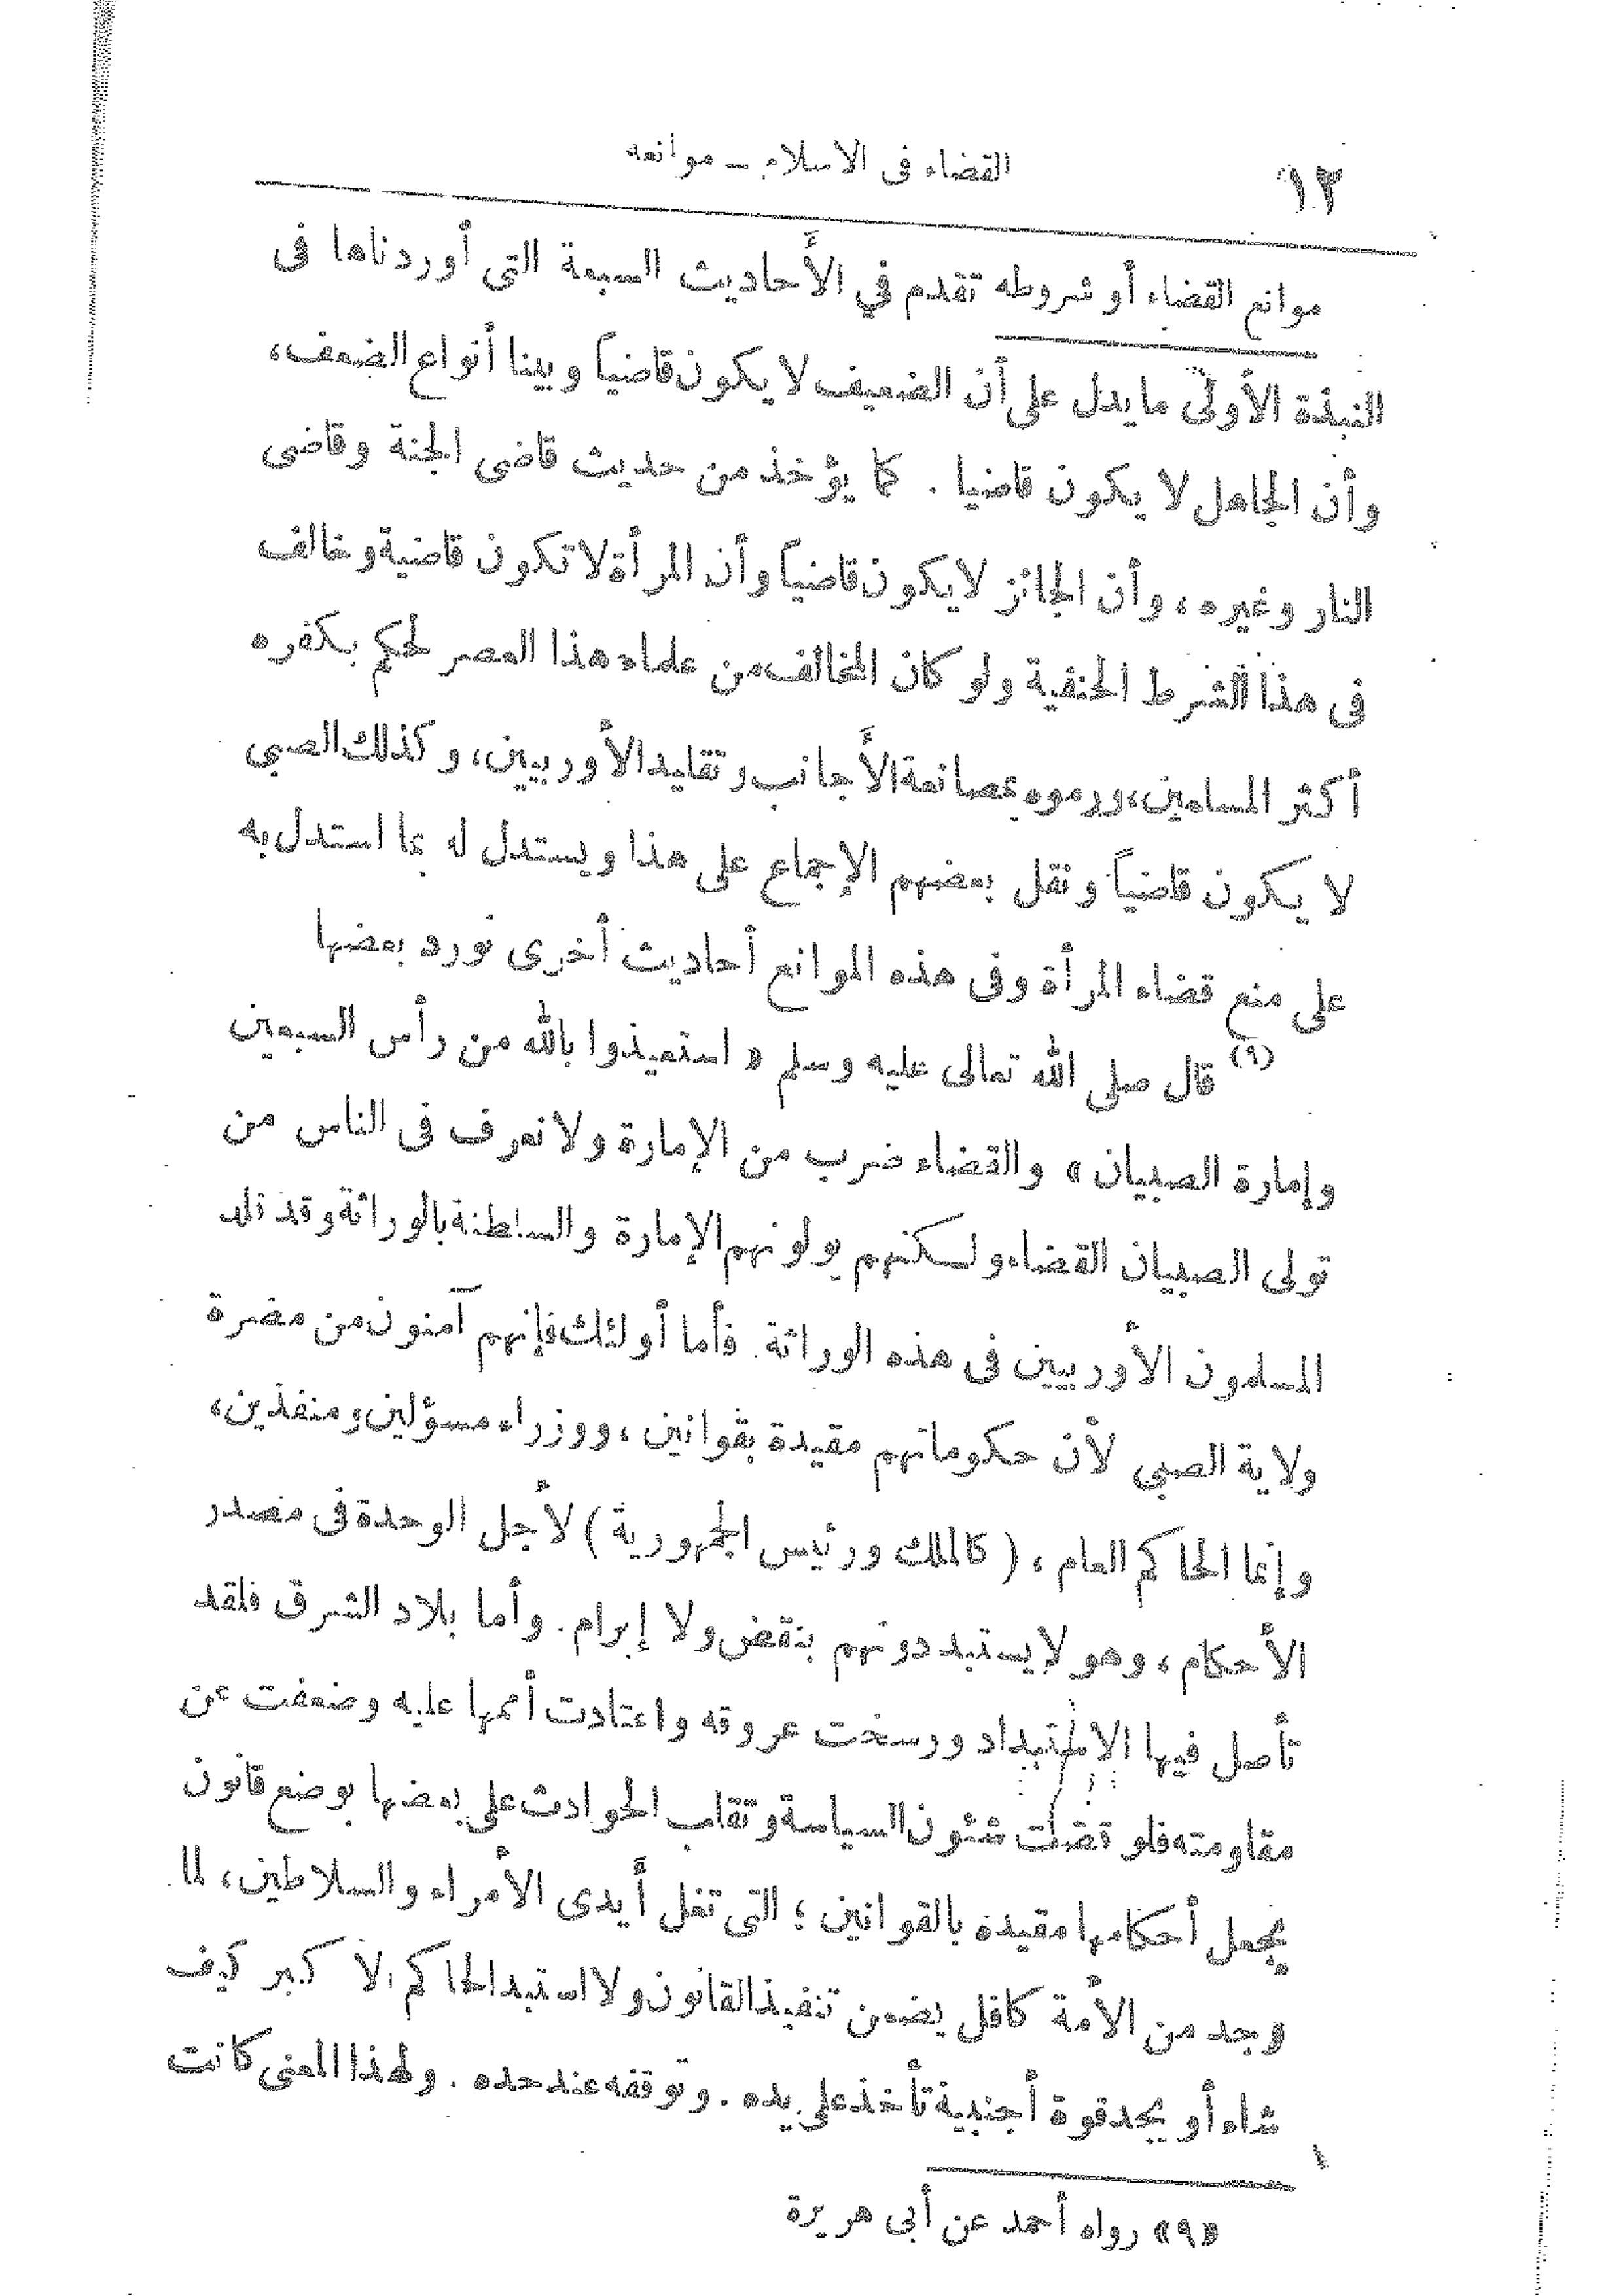 ١٢
القضاء فى الاسلام ـ موانعه
موانع القضاء أو شروطه تقدم في الأحاديث السبعة التى أوردناها فى
النبذة الأولىّ ما يدل على أن الضعيف لا يكون قاضياً وبينا أنواع الضعف،
وأن الجاهل لا يكون قاضيا . كما يؤخذ من حديث قاضى الجنة وقاضى
النار وغيره، وأن الجائز لا يكون قاضياً وأن المرأة لا تكون قاضية وخالف
فى هذا الشرط الحنفية ولو كان المخالف من علماء هذا العصر لحكم بكفره
أكثر المسلمين، ورموه بمصانعة الأجانب وتقليد الأوربيين، وكذلك الصبي
لا يكون قاضياً ونقل بعضهم الإجماع على هذا ويستدل له بما استدل به
على منع قضاء المرأة وفى هذه الموانع أحاديث أخرى نورد بعضها
(٩) قال صلى الله تعالى عليه وسلم « استعيذوا بالله من رأس السبعين
وإمارة الصبيان » والقضاء ضرب من الإمارة ولا نعرف فى الناس من
تولى الصبيان القضاء ولكنهم يولونهم الإمارة والسلطنة بالوراثة وقد قلد
المسلمون الأوربيين فى هذه الوراثة. فأما أولئك فإنهم آمنون من مضرة
ولاية الصبي لأن حكوماتهم مقيدة بقوانين، ووزراء مسؤلين ومنفذين،
وإنما الحاكم العام، (كالملك ورئيس الجمهورية) لأجل الوحدة فى مصدر
الأحكام، وهو لا يستبد دونهم بنقض ولا إبرام. وأما بلاد الشرق فلقد
تأصل فيها الاستبداد ورسخت عروقه واعتادت أممها عليه وضعفت عن
مقاومته فلو قضت شئون السياسة وتقلب الحوادث على بعضها بوضع قانون
يجعل أحكامها مقيدة بالقوانين؛ التى تغل أيدى الأمراء والسلاطين، لما
وجد من الأمة كافل يضمن تنفيذ القانون ولا استبد الحاكم الاكبر كيف
شاء أو يجد قوة أجنبية تأخذ على يده . وتوقفه عند حده . ولهذا المعنى كانت
«٩» رواه أحمد عن أبى هريرة